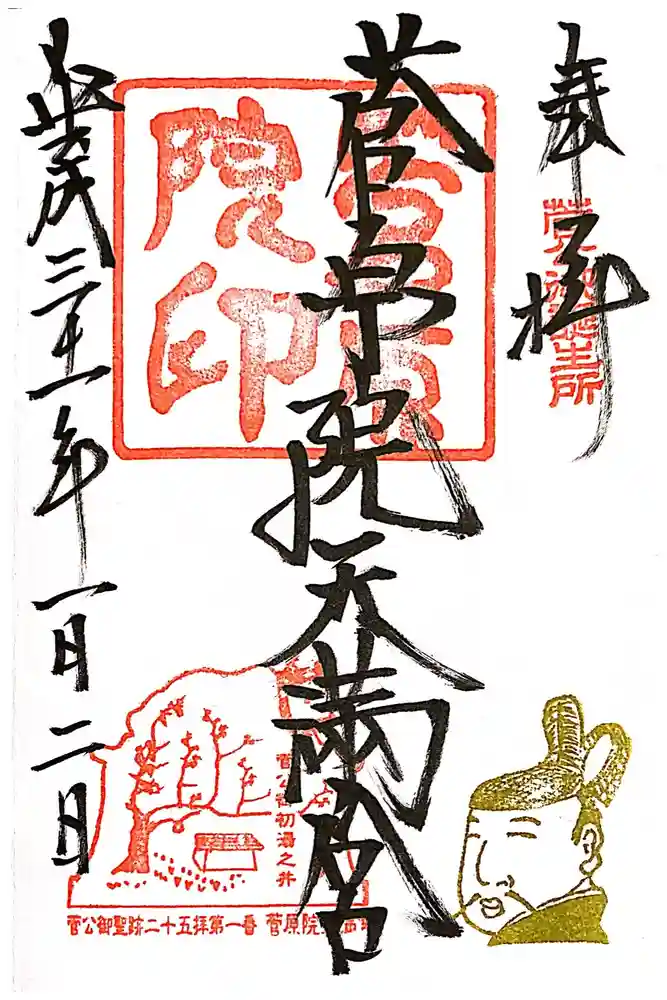 奉拝
菅公御誕生所
菅原院天満宮
菅原院印
菅公御初湯之井
菅公御聖跡二十五拝第一番 菅原院
平成三十一年一月二日